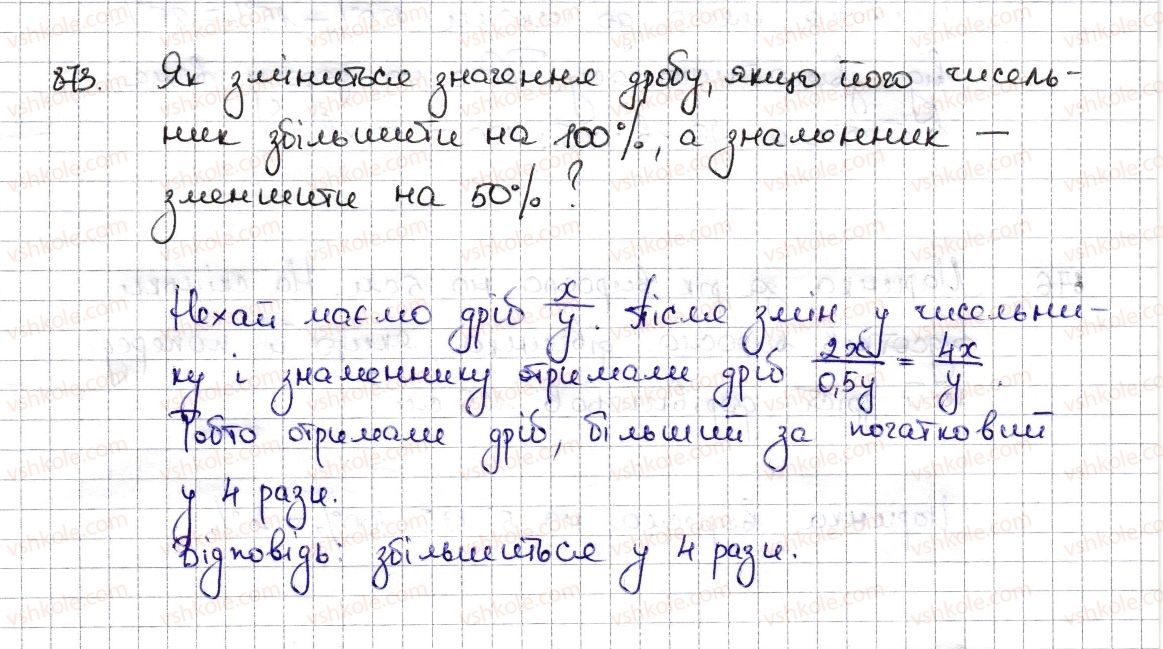 873. Як зміниться значення дробу, якщо його чисель-
ник збільшити на 100%, а знаменник —
зменшити на 50%?
Нехай маємо дріб x/y. Після змін у чисельни-
ку і знаменнику отримали дріб 2x/0,5y = 4x/y.
Тобто отримали дріб, більший за початковий
у 4 рази.
Відповідь: збільшиться у 4 рази.